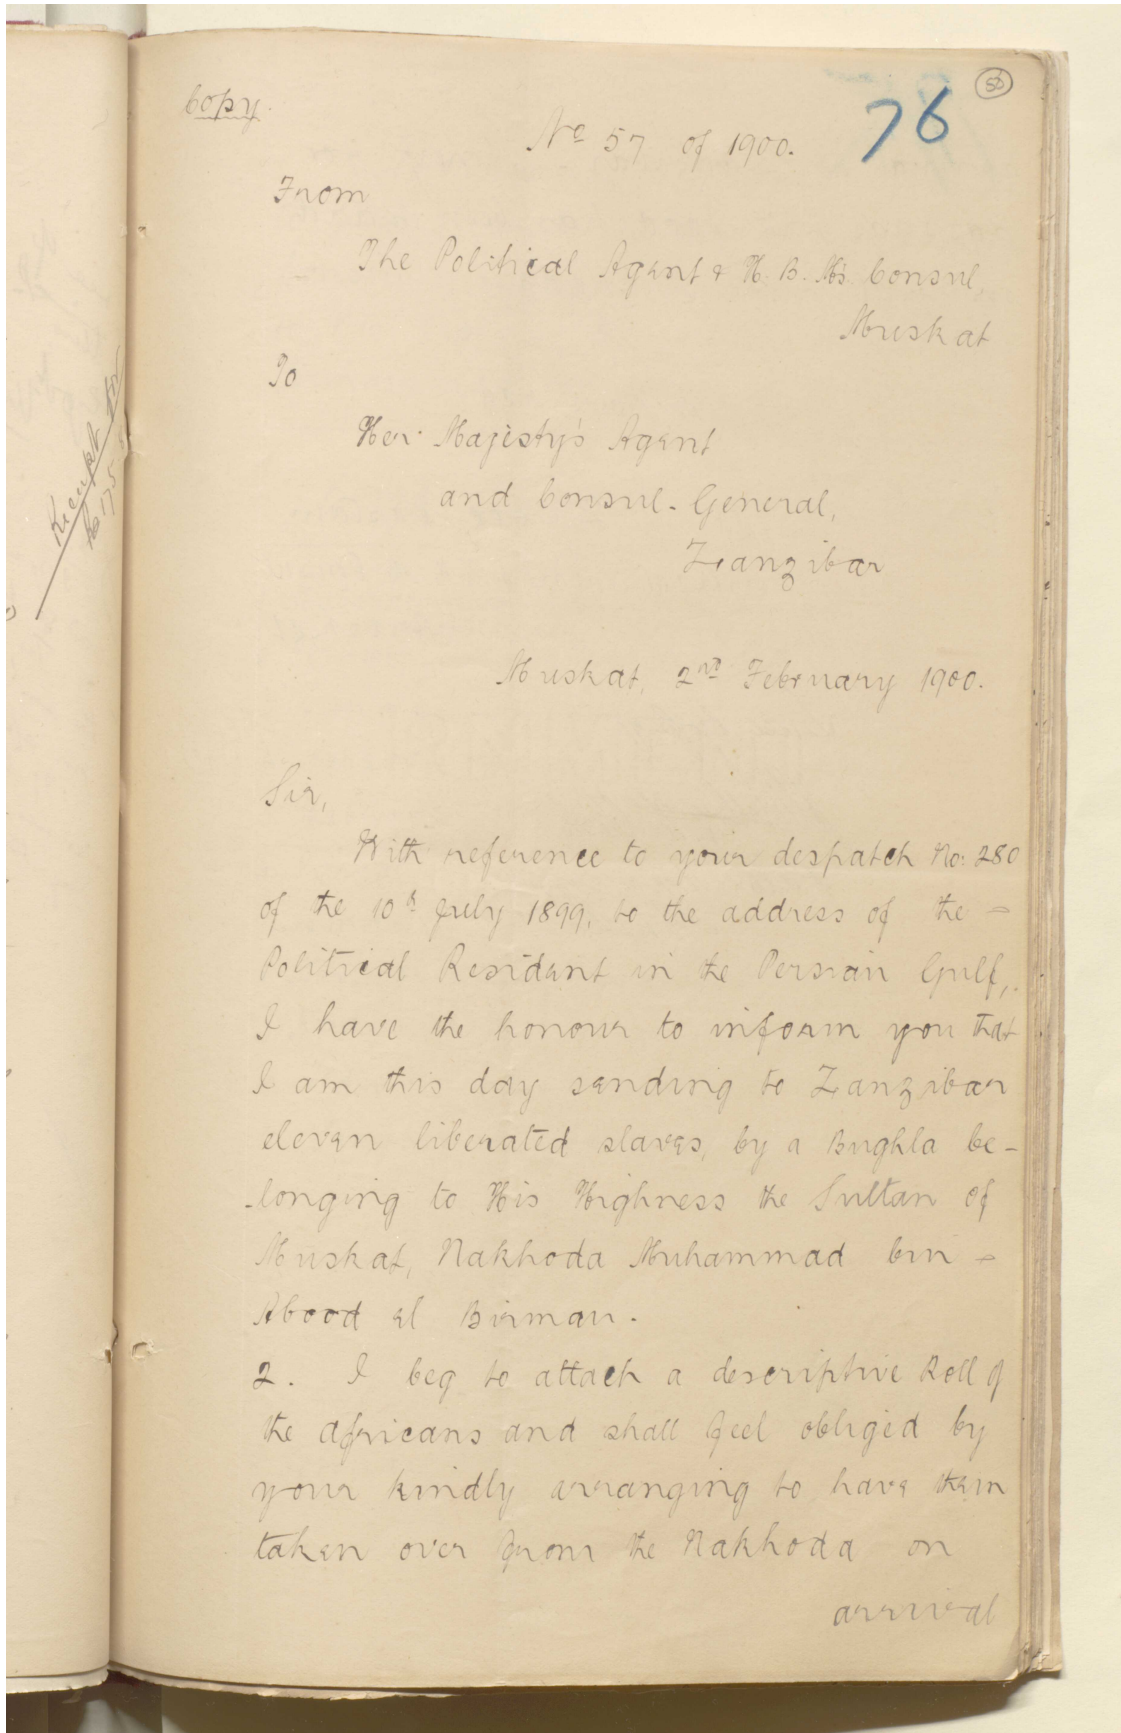 Copy.
76
No 57 of 1900.
From
The Political Agent & H. B. M's. Consul,
Muskat
To
Her Majesty's Agent
and Consul-General,
Zanzibar
Muskat, 2nd February 1900.
Sir,
With reference to your despatch No: 280
of the 10th July 1899, to the address of the -
Political Resident in the Persian Gulf,
I have the honour to inform you that
I am this day sending to Zanzibar
eleven liberated slaves, by a Bughla be-
-longing to His Highness the Sultan of
Muskat, Nakhoda Muhammad bin -
Abood el Birman.
2. I beg to attach a descriptive Roll of
the Africans and shall feel obliged by
your kindly arranging to have them
taken over from the Nakhoda on
arrival